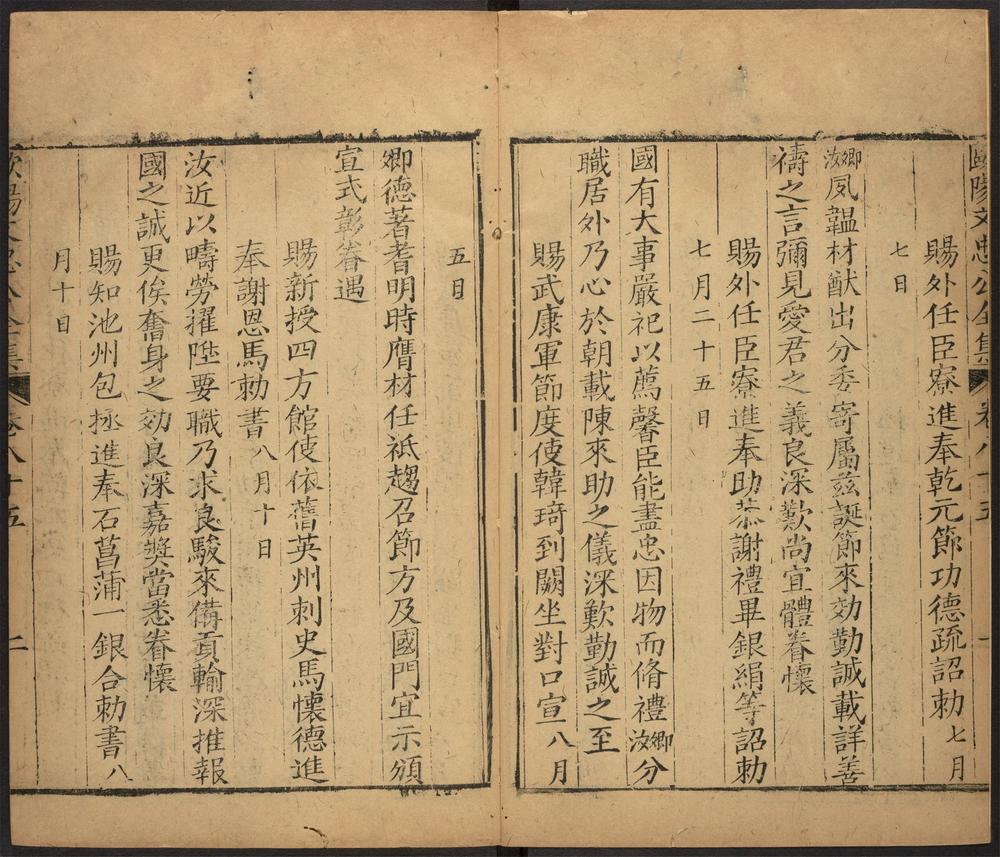 歐陽文忠公全集 卷八十五 一
賜外任臣寮進奉乾元節功德疏詔勅七月
七日
卿汝夙韞材猷出分委寄屬茲誕節來効勤誠載詳善
禱之言彌見愛君之義良深歎尚宜體眷懷
賜外任臣寮進奉助恭謝禮畢銀絹等詔勅
七月二十五日
國有大事嚴祀以薦馨臣能盡忠因物而脩禮卿汝分
職居外乃心於朝載陳來助之儀深歎勤誠之至
賜武康軍節度使韓琦到闕坐對口宣八月
五日
卿德著耆明時膺材任祗趨召節方及國門宜示頒
宣式彰眷遇
賜新授四方館使依舊英州刺史馬懷德進
奉謝恩馬勅書八月十日
汝近以疇勞擢陞要職乃求良駿來備貢輸深推報
國之誠更俟奮身之効良深嘉獎當悉眷懷
賜知池州包拯進奉石菖蒲一銀合勅書八
月十日
歐陽文忠公全集 卷八十五 二